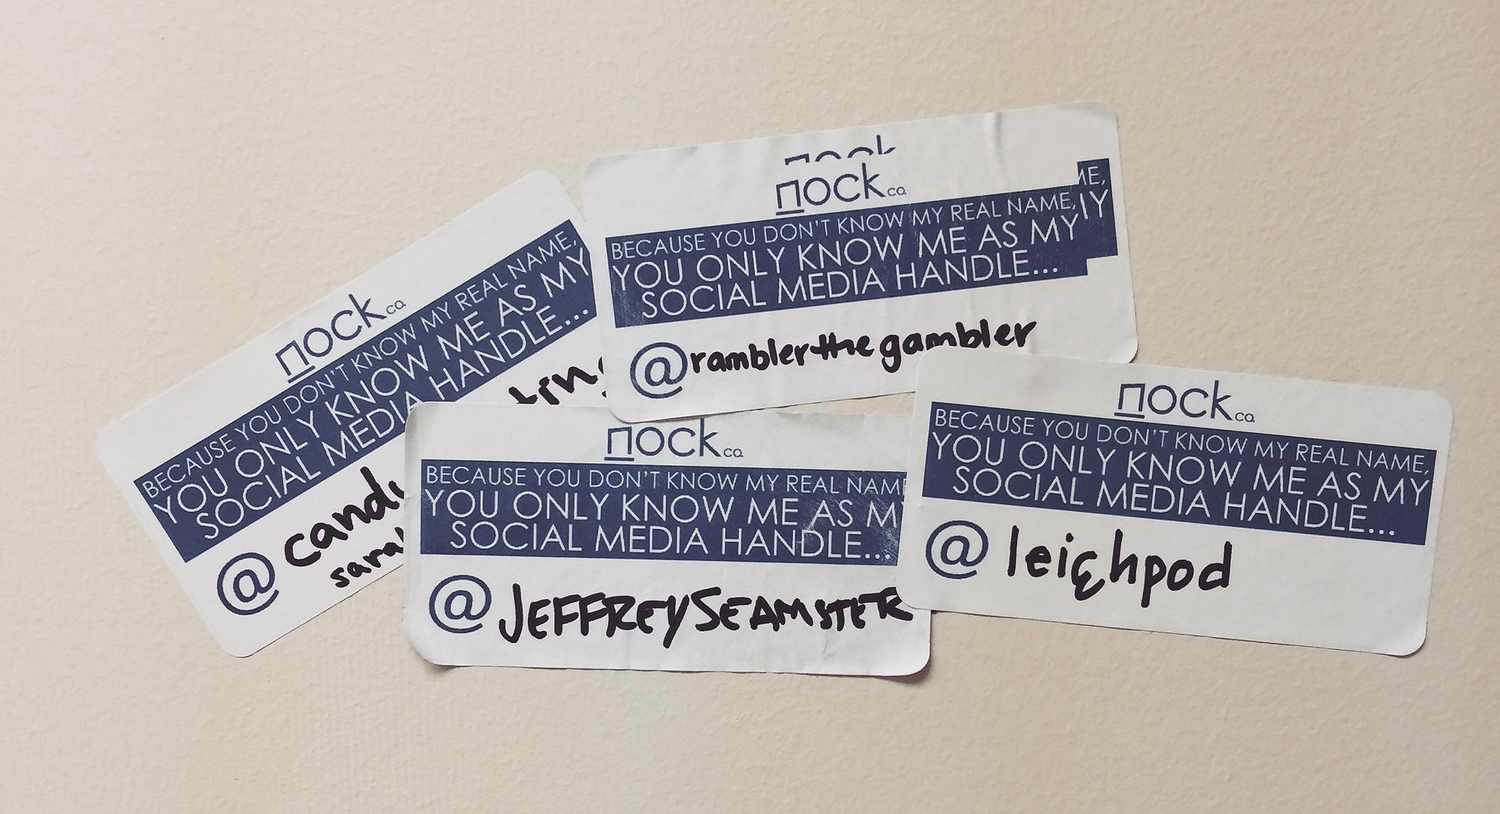 nock co.
BECAUSE YOU DON'T KNOW MY REAL NAME,
YOU ONLY KNOW ME AS MY
SOCIAL MEDIA HANDLE...
@
nock
nock co.
ME,
MY
BECAUSE YOU DON'T KNOW MY REAL NAME,
YOU ONLY KNOW ME AS MY
SOCIAL MEDIA HANDLE...
@ramblerthegambler
nock co.
BECAUSE YOU DON'T KNOW MY REAL NAME
YOU ONLY KNOW ME AS M
SOCIAL MEDIA HANDLE...
@JEFFREYSEAMSTER
nock co.
BECAUSE YOU DON'T KNOW MY REAL NAME,
YOU ONLY KNOW ME AS MY
SOCIAL MEDIA HANDLE...
@leighpod